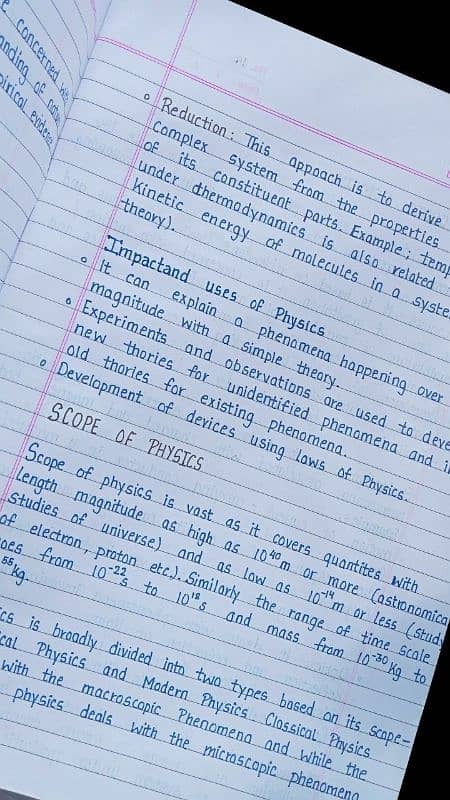 concerned
anding of
pirical eviden
o Reduction: This appoach is to derive
Complex system from the properties
of its constituent parts. Example; temp
under dhermodynamics is also related
Kinetic energy of molecules in a syste
theory).
Impactand uses of Physics
o It can explain a phenomena happening over
magnitude with a simple theory.
o Experiments and observations are used to deve
new thories for unidentified phenomena and i
old thories for existing phenomena.
o Development of devices using laws of Physics.
SCOPE OF PHYSICS
Scope of physics is vast as it covers quantites with
length magnitude as high as 10⁴⁰m or more (astronomica
studies of universe) and as low as 10⁻¹⁴m or less (stud
of electron, proton etc.). Similarly the range of time scale
oes from 10⁻²²s to 10¹⁸s and mass from 10⁻³⁰kg to
⁵⁵kg.
ics is broadly divided into two types based on its scope-
cal Physics and Modern Physics Classical Physics
with the macroscopic Phenomena and while the
physics deals with the microscopic phenomena